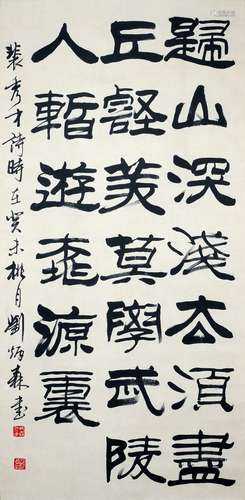 歸山深淺去須盡
丘壑美莫學武陵
人暫遊桃源裏
裴秀才詩時在癸未桃月劉炳森書